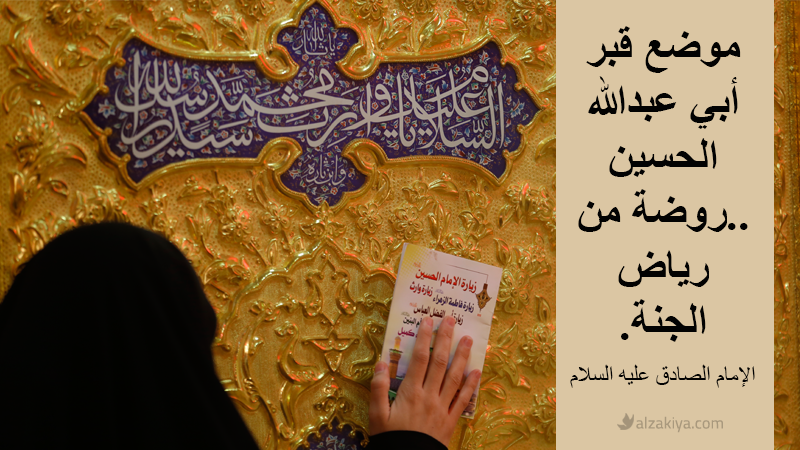 موضع قبر
أبي عبدالله
الحسين
..روضة من
رياض
الجنة.
الإمام الصادق عليه السلام
alzakiya.com
يا ثار الله
السلام عليك يا وارث محمد سيد رسل الله
وابن ثاره
زيارة الإمام الحسين
زيارة وارث
زيارة فاطمة الزهراء
زيارة أبي الفضل العباس
كميل